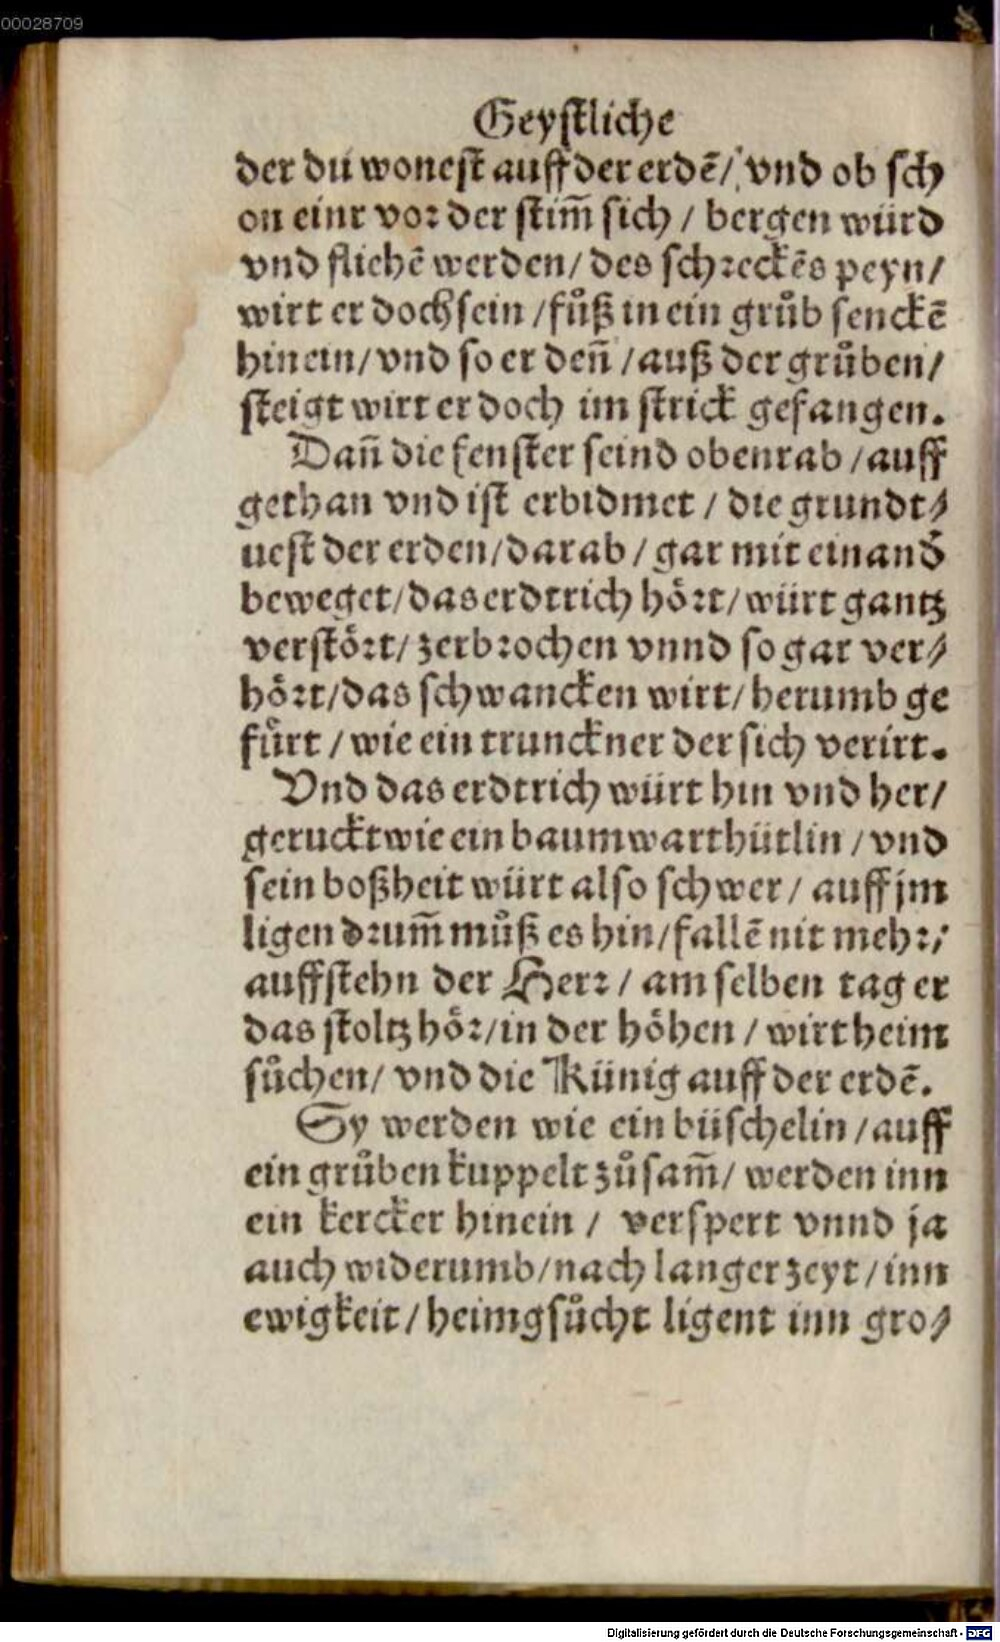 00028709
Geystliche
der du wonest auff der erdē/ vnd ob sch
on einr vor der stim̄ sich / bergen würd
vnd fliehē werden/ des schreckēs peyn/
wirt er doch sein /fůß in ein grůb senckē
hinein/ vnd so er deñ /auß der grůben/
steigt wirt er doch im strick gefangen.
Dañ die fenster seind obenrab /auff
gethan vnd ist erbidmet / die grundt⸗
uest der erden/darab / gar mit einand̄
beweget/das erdtrich hört/würt gantz
verstört/ zerbrochen vnnd so gar ver⸗
hört/das schwancken wirt/herumb ge
fürt / wie ein trunckner der sich verirt.
Vnd das erdtrich würt hin vnd her/
geruckt wie ein baumwarthütlin / vnd
sein boßheit würt also schwer/ auff jm
ligen drum̄ můß es hin/fallē nit mehr/
auffstehn der Herr / am selben tag er
das stoltz hör/in der höhen / wirt heim
sůchen/ vnd die Künig auff der erdē.
Sy werden wie ein büschelin /auff
ein grůben kuppelt zůsam̄/ werden inn
ein kercker hinein / verspert vnnd ja
auch widerumb/nach langer zeyt /inn
ewigkeit/heimgsůcht ligent inn gro⸗
Digitalisierung gefördert durch die Deutsche Forschungsgemeinschaft - DFG